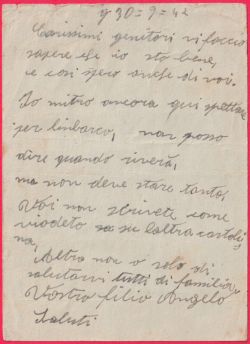 li 30=9=42
Carissimi genitori vi faccio
sapere che io sto bene,
e cosi spero anche di voi.
Io mitro ancora qui spettare
per linbarco, non posso
dire quando riverà,
ma non deve stare tanto,
Voi non scrivete come
viodeto su laltra cartoli
na,
Altro non o solo di
salutarvi tutti di familia,
Vostro filio Angelo
Saluti